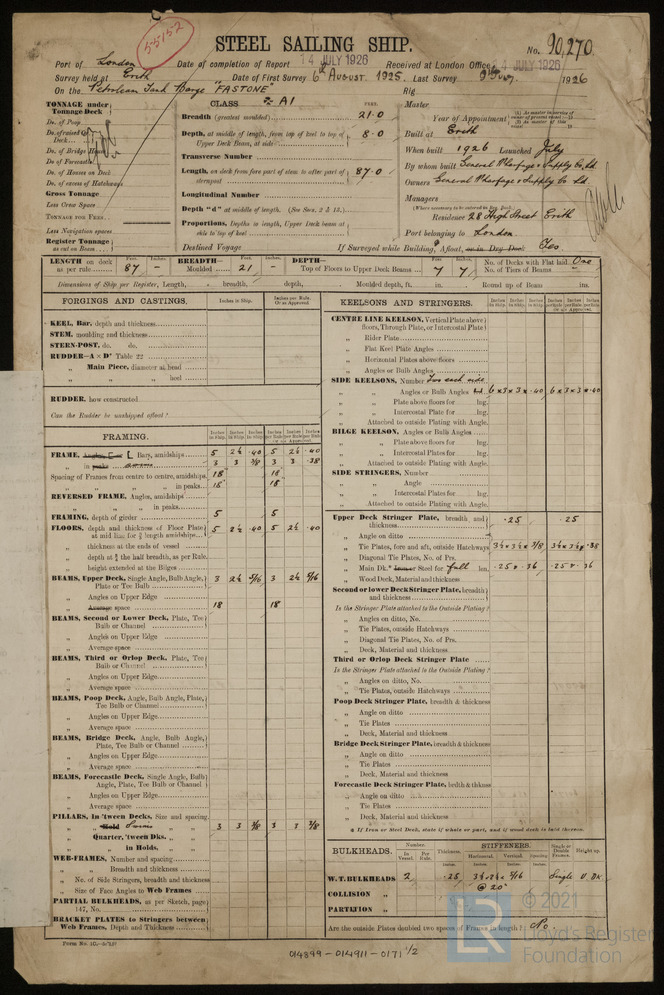 55152
STEEL SAILING SHIP.
No. 90,270
Port of London Date of completion of Report 14 JULY 1926 Received at London Office 14 JULY 1926
Survey held at Erith Date of First Survey 6th August. 1925. Last Survey 1926
On the Petroleum Tank Barge "FASTONE" Rig
TONNAGE under
Tonnage Deck
Do. of Poop
Do. of Bridge House
Do. of Forecastle
Do. of Houses on Deck
Do. of excess of Hatchways
Gross Tonnage
Less Crew Space
TONNAGE FOR FEES
Less Navigation spaces
Register Tonnage
as cut on Beam
CLASS A1
FEET.
Breadth (greatest moulded) 21.0
Depth, at middle of length, from top of keel to top of Upper Deck Beam, at side 8.0
Transverse Number
Length, on deck from fore part of stem to after part of sternpost 87.0
Longitudinal Number
Depth "d" at middle of length. (See Secs. 2 & 13.)
Proportions, Depths to length, Upper Deck Beam at side to top of keel
Destined Voyage If Surveyed while Building, Afloat, or in Dry Dock. Yes
Master
Year of Appointment
Built at Erith
When built 1926 Launched July
By whom built General Wharfage & Supply Co. Ld.
Owners General Wharfage & Supply Co Ld.
Managers
Residence 28 High Street Erith
Port belonging to London
LENGTH on deck as per rule 87 - BREADTH— Moulded 21 - DEPTH— Top of Floors to Upper Deck Beams 7 7 No. of Decks with Flat laid One
No. of Tiers of Beams
Dimensions of Ship per Register, Length, breadth, depth, Moulded depth, ft. in. Round up of Beam ins.
FORGINGS AND CASTINGS. Inches in Ship. Inches per Rule. Or as Approved
KEEL, Bar, depth and thickness
STEM, moulding and thickness
STERN-POST, do. do.
RUDDER—A × D' Table 22
„ Main Piece, diameter at head
„ „ „ heel
RUDDER, how constructed
Can the Rudder be unshipped afloat?
FRAMING.
FRAME, Angles, Bars, amidships 5 2½ .40 5 2½ .40
„ in peaks 3 3 3/8 3 3 .38
Spacing of Frames from centre to centre, amidships 18 18
„ „ in peaks 18 18
REVERSED FRAME, Angles, amidships
„ „ in peaks
FRAMING, depth of girder 5 5
FLOORS, depth and thickness of Floor Plate at mid line for ½ length amidships 5 2½ .40 5 2½ .40
„ thickness at the ends of vessel
„ depth at ¾ the half breadth, as per Rule
„ height extended at the Bilges
BEAMS, Upper Deck, Single Angle, Bulb Angle, Plate or Tee Bulb 3 2½ 5/16 3 2½ 5/16
„ Angles on Upper Edge
„ Average space 18 18
BEAMS, Second or Lower Deck, Plate, Tee Bulb or Channel
„ Angles on Upper Edge
„ Average space
BEAMS, Third or Orlop Deck, Plate, Tee Bulb or Channel
„ Angles on Upper Edge
„ Average space
BEAMS, Poop Deck, Angle, Bulb Angle, Plate, Tee Bulb or Channel
„ Angles on Upper Edge
„ Average space
BEAMS, Bridge Deck, Angle, Bulb Angle, Plate, Tee Bulb or Channel
„ Angles on Upper Edge
„ Average space
BEAMS, Forecastle Deck, Single Angle, Bulb Angle, Plate, Tee Bulb or Channel
„ Angles on Upper Edge
„ Average space
PILLARS, In 'tween Decks, Size and spacing
„ Hold 3 3 3/8 3 3 3/8
„ Quarter, 'tween Dks. „ „
„ in Holds, „ „
WEB-FRAMES, Number and spacing
„ Breadth and thickness
„ No. of Side Stringers, breadth and thickness
„ Size of Face Angles to Web Frames
PARTIAL BULKHEADS, as per Sketch, page 147, No.
BRACKET PLATES to Stringers between Web Frames, Depth and Thickness
KEELSONS AND STRINGERS.
CENTRE LINE KEELSON, Vertical Plate above floors, Through Plate, or Intercostal Plate
„ Rider Plate
„ Flat Keel Plate Angles
„ Horizontal Plates above floors
„ Angles or Bulb Angles
SIDE KEELSONS, Number Two each side
„ Angles or Bulb Angles 6 × 3 × 3 × .40 6 × 3 × 3 × .40
„ Plate above floors for lng.
„ Intercostal Plate for lng.
„ Attached to outside Plating with Angle
BILGE KEELSON, Angles or Bulb Angles
„ Plate above floors for lng.
„ Intercostal Plates for lng.
„ Attached to outside Plating with Angle
SIDE STRINGERS, Number
„ Angle
„ Intercostal Plates for lng.
„ Attached to outside Plating with Angle
Upper Deck Stringer Plate, breadth and thickness .25 .25
„ Angle on ditto
„ Tie Plates, fore and aft, outside Hatchways 3½ × 3½ × 3/8 3½ × 3½ × .38
„ Diagonal Tie Plates, No. of Prs.
„ Main Dk.* Steel for full len. .25 & .36 .25 & .36
„ Wood Deck, Material and thickness
Second or lower Deck Stringer Plate, breadth and thickness
Is the Stringer Plate attached to the Outside Plating?
„ Angles on ditto, No.
„ Tie Plates, outside Hatchways
„ Diagonal Tie Plates, No. of Prs.
„ Deck, Material and thickness
Third or Orlop Deck Stringer Plate
Is the Stringer Plate attached to the Outside Plating?
„ Angles on ditto, No.
„ Tie Plates, outside Hatchways
Poop Deck Stringer Plate, breadth & thickness
„ Angle on ditto
„ Tie Plates
„ Deck, Material and thickness
Bridge Deck Stringer Plate, breadth & thickness
„ Angle on ditto
„ Tie Plates
„ Deck, Material and thickness
Forecastle Deck Stringer Plate, brdth & thkness
„ Angle on ditto
„ Tie Plates
„ Deck, Material and thickness
* If Iron or Steel Deck, state if whole or part, and if wood deck is laid thereon.
BULKHEADS. Number. In Vessel. Per Rule. Thickness. STIFFENERS. Horizontal. Vertical. Spacing Single or Double Frames. Height up.
W.T. BULKHEADS 2 .25 3½ × 2½ × 5/16 @ 20" Single U. Dk.
COLLISION „
PARTITION „
Are the outside Plates doubled two spaces of Frames in length? No.
© 2021
LR Lloyd's Register Foundation
014899-014911-0171 1/2